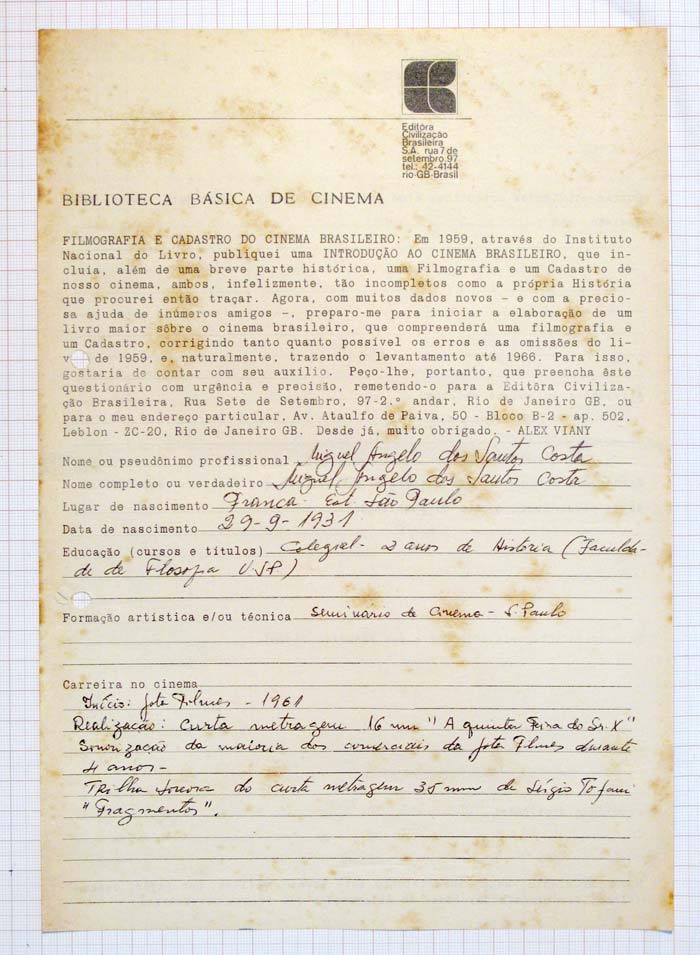 Editôra
Civilização
Brasileira
S.A. rua 7 de
setembro, 97
tel.: 42-4144
rio-GB-Brasil
BIBLIOTECA BÁSICA DE CINEMA
FILMOGRAFIA E CADASTRO DO CINEMA BRASILEIRO: Em 1959, através do Instituto
Nacional do Livro, publiquei uma INTRODUÇÃO AO CINEMA BRASILEIRO, que in-
cluía, além de uma breve parte histórica, uma Filmografia e um Cadastro de
nosso cinema, ambos, infelizmente, tão incompletos como a própria História
que procurei então traçar. Agora, com muitos dados novos - e com a precio-
sa ajuda de inúmeros amigos -, preparo-me para iniciar a elaboração de um
livro maior sôbre o cinema brasileiro, que compreenderá uma filmografia e
um Cadastro, corrigindo tanto quanto possível os erros e as omissões do li-
v de 1959, e, naturalmente, trazendo o levantamento até 1966. Para isso,
gostaria de contar com seu auxílio. Peço-lhe, portanto, que preencha êste
questionário com urgência e precisão, remetendo-o para a Editôra Civiliza-
ção Brasileira, Rua Sete de Setembro, 97-2.º andar, Rio de Janeiro GB, ou
para o meu endereço particular, Av. Ataulfo de Paiva, 50 - Bloco B-2 - ap. 502,
Leblon - ZC-20, Rio de Janeiro GB. Desde já, muito obrigado. - ALEX VIANY
Nome ou pseudônimo profissional Miguel Angelo dos Santos Costa
Nome completo ou verdadeiro Miguel Angelo dos Santos Costa
Lugar de nascimento Franca - Est. São Paulo
Data de nascimento 29-9-1931
Educação (cursos e títulos) Colegial - 2 anos de História (Faculda-
de de Filosofia USP)
Formação artística e/ou técnica Seminário de Cinema - S. Paulo
Carreira no cinema
Início: Jota Filmes - 1961
Realização: Curta metragem 16 mm "A quinta Feira do Sr. X"
Sonorização da maioria dos comerciais da Jota Filmes durante
4 anos -
Trilha sonora do curta metragem 35 mm de Sérgio Tofani
"Fragmentos".